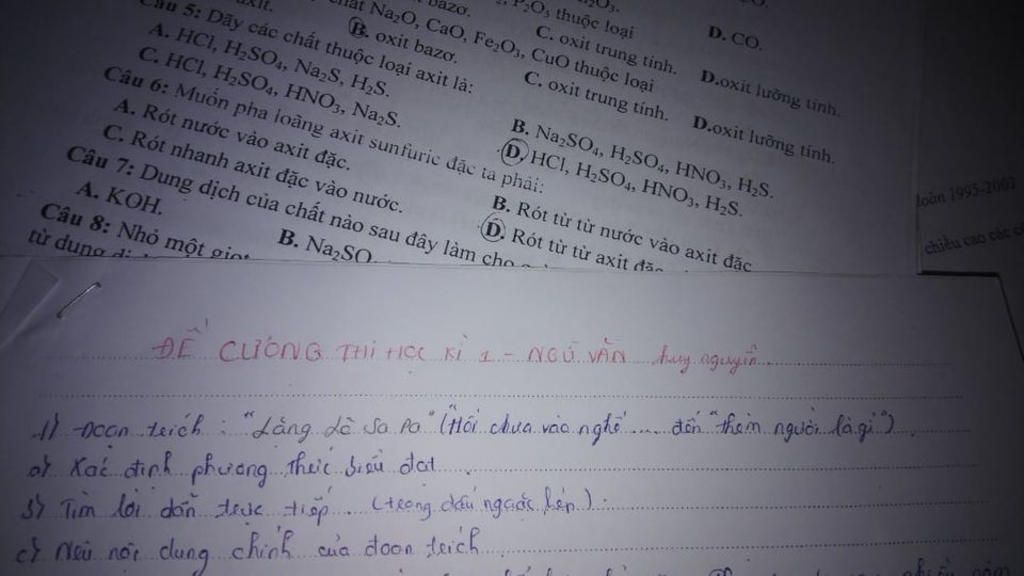 P₂O₃ thuộc loại
D. CO.
C. oxit trung tính.
D.oxit lưỡng tính.
Na₂O, CaO, Fe₂O₃, CuO thuộc loại
B. oxit bazơ.
C. oxit trung tính.
D.oxit lưỡng tính.
Câu 5: Dãy các chất thuộc loại axit là:
A. HCl, H₂SO₄, Na₂S, H₂S.
B. Na₂SO₄, H₂SO₄, HNO₃, H₂S.
C. HCl, H₂SO₄, HNO₃, Na₂S.
D. HCl, H₂SO₄, HNO₃, H₂S.
Câu 6: Muốn pha loãng axit sunfuric đặc ta phải:
A. Rót nước vào axit đặc.
B. Rót từ từ nước vào axit đặc
C. Rót nhanh axit đặc vào nước.
D. Rót từ từ axit đặc
Câu 7: Dung dịch của chất nào sau đây làm cho
A. KOH.
B. Na₂SO
Câu 8: Nhỏ một giọt
từ dung
1995-2002
chiều cao các
ĐỀ CƯƠNG THI HỌC KÌ 1 - NGỮ VĂN huy nguyễn
1) Đoạn trích : "Lặng lẽ Sa Pa" ("Hồi chưa vào nghề .... đến "thèm người là gì")
a) Xác định phương thức biểu đạt
b) Tìm lời dẫn trực tiếp (trong dấu ngoặc kép).
c) Nêu nội dung chính của đoạn trích